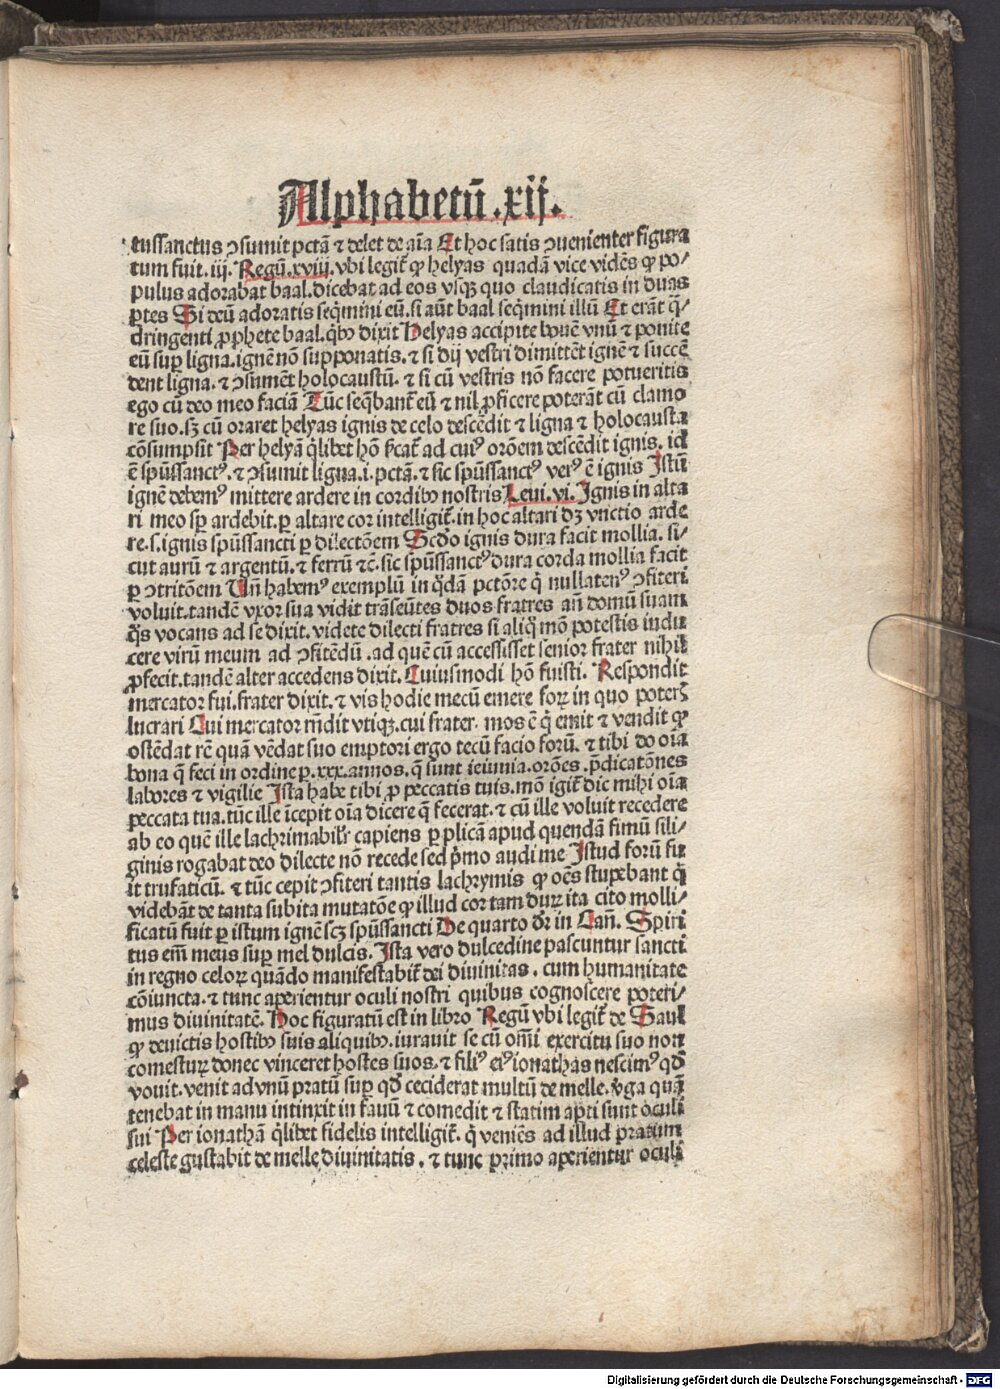 Alphabetū .xij.
tussanctus ↄsumit pctā ⁊ delet de aīa Et hoc satis ↄuenienter figura
tum fuit .iij. Regū .xviij. vbi legit̄ ꝙ helyas quadā vice vidēs ꝙ po⸗
pulus adorabat baal. dicebat ad eos vsqꝫ quo claudicatis in duas
ꝑtes Si deū adoratis seq̄mini eū. si aūt baal seq̄mini illū Et erāt q̄⸗
dringenti ꝓphete baal. q̄bꝰ dixit Helyas accipite bouē vnū ⁊ ponite
eū suꝑ ligna. ignē nō supponatis. ⁊ si dij vestri dimittēt ignē ⁊ succē
dent ligna. ⁊ ↄsumēt holocaustū. ⁊ si cū vestris nō facere potueritis
ego cū deo meo faciā Tūc seq̄bant̄ eū ⁊ nil ꝓficere poterāt cū clamo
re suo. sꝫ cū oraret helyas ignis de celo descēdit ⁊ ligna ⁊ holocausta
cōsumpsit Per helyā q̄libet hō p̄cat̄ ad cuiꝰ orōem descēdit ignis. id
ē spūssanctꝰ. ⁊ ↄsumit ligna .i. pctā. ⁊ sic spūssanctꝰ verꝰ ē ignis Istū
ignē debemꝰ mittere ardere in cordibꝰ nostris Leui. vi. Ignis in alta
ri meo sꝑ ardebit. ꝑ altare cor intelligit̄. in hoc altari dꝫ vnctio arde
re .s. ignis spūssancti ꝑ dilectōem Scdo ignis dura facit mollia. si⸗
cut aurū ⁊ argentū. ⁊ ferrū ⁊c̄. sic spūssanctꝰ dura corda mollia facit
ꝑ ↄtritōem Vn̄ habemꝰ exemplū in q̄dā pctōre q̇ nullatenꝰ ↄfiteri
voluit. tandē vxor sua vidit trāseūtes duos fratres an̄ domū suam
q̄s vocans ad se dixit. videte dilecti fratres si aliq̄ mō potestis indu
cere virū meum ad ↄfitēdū. ad quē cū accessisset senior frater nihil
ꝓfecit. tandē alter accedens dixit. Cuiusmodi hō fuisti. Respondit
mercator fui. frater dixit. ⁊ vis hodie mecū emere forꝝ in quo poteris
lucrari Cui mercator rn̄dit vtiqꝫ. cui frater. mos ē q̇ emit ⁊ vendit ꝙ
ostēdat rē quā vēdat suo emptori ergo tecū facio forū. ⁊ tibi do oīa
bona q̄ feci in ordine ꝑ .xxx. annos. q̄ sunt ieiunia. orōes. p̄dicatōnes
labores ⁊ vigilie Ista habe tibi ꝓ peccatis tuis. mō igit̄ dic mihi oīa
peccata tua. tūc ille īcepit oīa dicere q̄ fecerat. ⁊ cū ille voluit recedere
ab eo quē ille lachrimabilr̄ capiens ꝑ plicā apud quendā fimū sili⸗
ginis rogabat deo dilecte nō recede sed p̄mo audi me Istud forū fu
it trufaticū. ⁊ tūc cepit ↄfiteri tantis lachrymis ꝙ oēs stupebant q̇
videbāt de tanta subita mutatōe ꝙ illud cor tam durꝝ ita cito molli⸗
ficatū fuit ꝑ istum ignē scꝫ spūssancti De quarto dr̄ in Can̄. Spiri
tus em̄ meus suꝑ mel dulcis. Ista vero dulcedine pascuntur sancti
in regno celoꝝ quādo manifestabit̄ dei diuinitas. cum humanitate
cōiuncta. ⁊ tunc aperientur oculi nostri quibus cognoscere poteri⸗
mus diuinitatē. Hoc figuratū est in libro Regū vbi legit̄ de Saul
ꝙ deuictis hostibꝰ suis aliquibꝰ. iurauit se cū om̄i exercitu suo non
comesturꝝ donec vinceret hostes suos. ⁊ filiꝰ eiꝰ ionathas nesciuꝰ qd̄
vouit. venit ad vnū pratū suꝑ qd̄ ceciderat multū de melle. v̄ga quā
tenebat in manu intinxit in fauū ⁊ comedit ⁊ statim aꝑti sunt oculi
sui Per ionathā q̄libet fidelis intelligit̄. q̇ veniēs ad illud pratum
celeste gustabit de melle diuinitatis. ⁊ tunc primo aperientur oculi
Digitalisierung gefördert durch die Deutsche Forschungsgemeinschaft - DFG